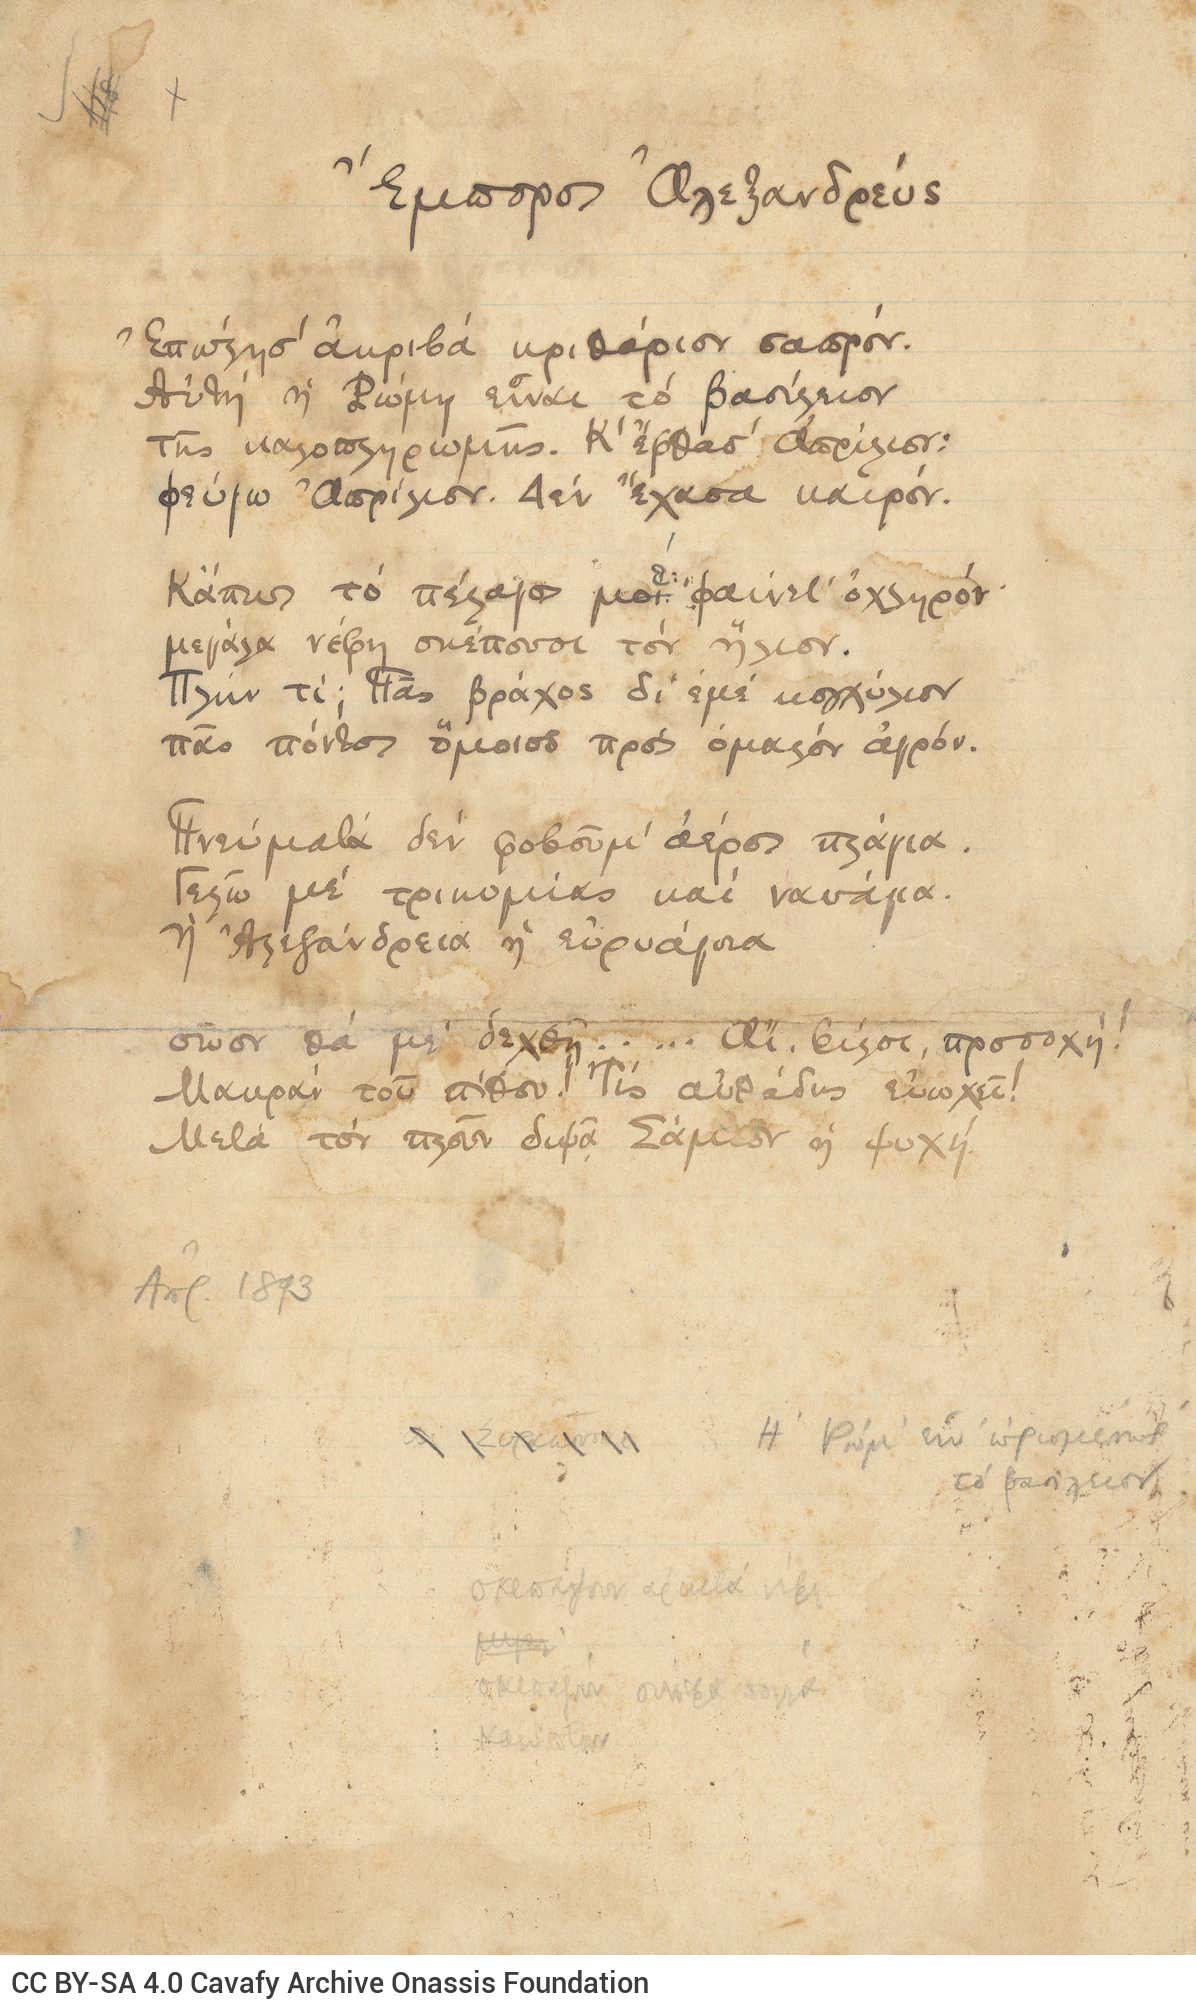 Ἔμπορος Ἀλεξανδρεύς
Ἐπώλησ' ἀκριβά κριθάριον σαπρόν.
Αὐτή ἡ Ῥώμη εἶναι τό βασίλειον
τῆς καλοπληρωμῆς. Κ' ἔφθασ' Ἀπρίλιον:
φεύγω Ἀπρίλιον. Δέν ἔχασα καιρόν.
Κἄπως τό πέλαγος μοὶ φαίνετ' ὀχληρόν·
μεγάλα νέφη σκέπουσι τόν ἥλιον.
Πλήν τί; Πᾶς βράχος δι' ἐμέ κογχύλιον
πᾶς πόντος ὅμοιος πρός ὁμαλόν ἀγρόν.
Πνεύματα δέν φοβοῦμ' ἀέρος πλάγια.
Γελῶ μέ τρικυμίας καί ναυάγια.
Ἡ Ἀλεξάνδρεια ἡ εὐρυάγυια
σῶον θά με δεχθῇ..... Αἴ, φίλοι, προσοχή!
Μακράν τοῦ πίθου! Τίς αὐθάδης εὐωχεῖ!
Μετά τόν πλοῦν διψᾷ Σάμιον ἡ ψυχή
Ἀπρ. 1893
Ἡ Ῥώμ' εἶν' ὡρισμένως
τό βασίλειον
σκεπάζουν ἀρκετά νέφη
σκεπάζουν σύννεφα πολλά
CC BY-SA 4.0 Cavafy Archive Onassis Foundation